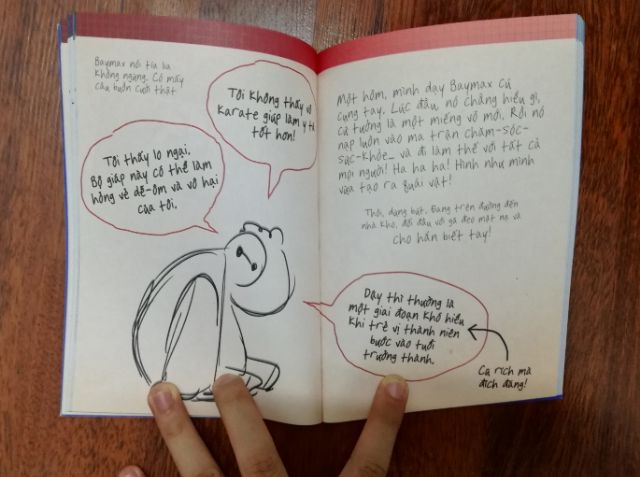 Baymax nói tía lia
không ngừng. Có mấy
câu buồn cười thật
Tôi không thấy võ
karate giúp làm y tá
tốt hơn!
Tôi thấy lo ngại.
Bộ giáp này có thể làm
hỏng vẻ dễ-ôm và vô hại
của tôi.
Một hôm, mình dạy Baymax cú
cụng tay. Lúc đầu nó chẳng hiểu gì,
cứ tưởng là một miếng võ mới. Rồi nó
nạp luôn vào ma trận chăm-sóc-
sức-khỏe... và đi làm thế với tất cả
mọi người! Ha ha ha! Hình như mình
vừa tạo ra quái vật!
Thôi, dừng bút. Đang trên đường đến
nhà kho, đối đầu với gã đeo mặt nạ và
cho hắn biết tay!
Dậy thì thường là
một giai đoạn khó hiểu
khi trẻ vị thành niên
bước vào tuổi
trưởng thành.
Cà rịch mà
đích đáng!